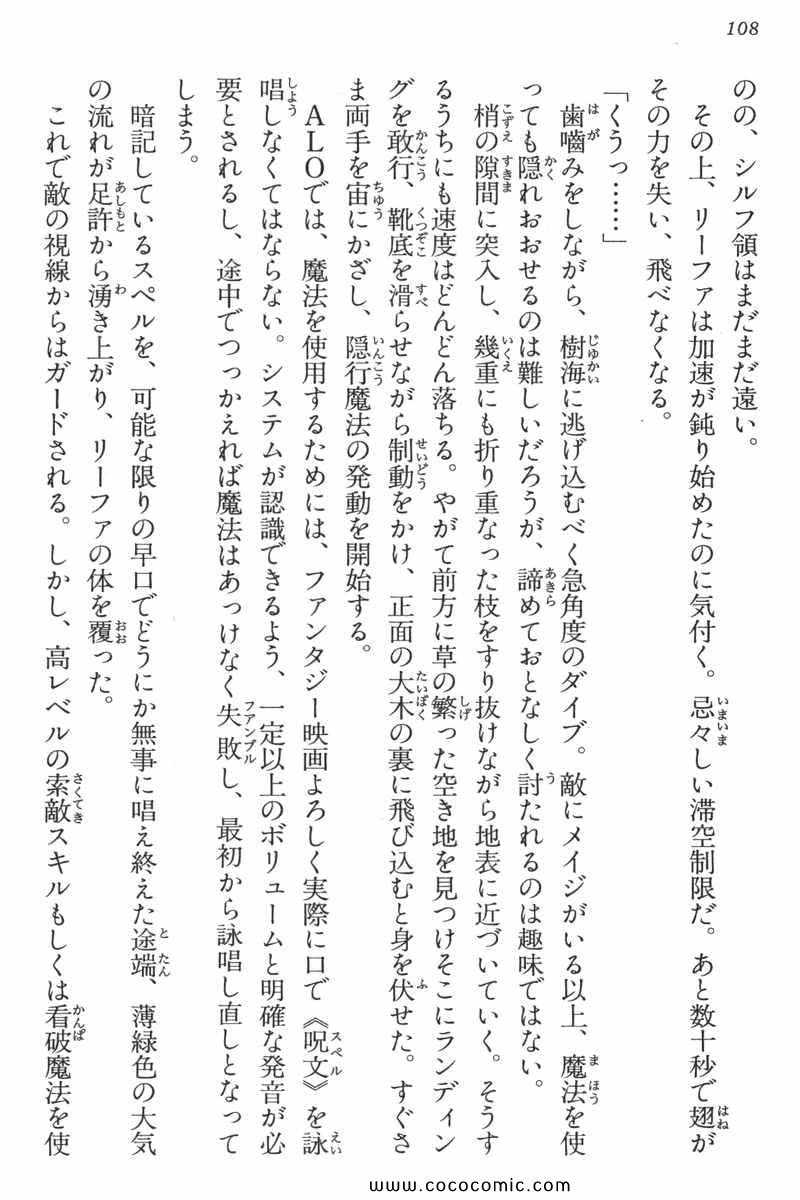 108
のの、シルフ領はまだまだ遠い。
　その上、リーファは加速が鈍り始めたのに気付く。忌々しい滞空制限だ。あと数十秒で翅が
その力を失い、飛べなくなる。
「くうっ……」
　歯嚙みをしながら、樹海に逃げ込むべく急角度のダイブ。敵にメイジがいる以上、魔法を使
っても隠れおおせるのは難しいだろうが、諦めておとなしく討たれるのは趣味ではない。
　梢の隙間に突入し、幾重にも折り重なった枝をすり抜けながら地表に近づいていく。そうす
るうちにも速度はどんどん落ちる。やがて前方に草の繁った空き地を見つけそこにランディン
グを敢行、靴底を滑らせながら制動をかけ、正面の大木の裏に飛び込むと身を伏せた。すぐさ
ま両手を宙にかざし、隠行魔法の発動を開始する。
　ＡＬＯでは、魔法を使用するためには、ファンタジー映画よろしく実際に口で《呪文》を詠
唱しなくてはならない。システムが認識できるよう、一定以上のボリュームと明確な発音が必
要とされるし、途中でつっかえれば魔法はあっけなく失敗し、最初から詠唱し直しとなって
しまう。
　暗記しているスペルを、可能な限りの早口でどうにか無事に唱え終えた途端、薄緑色の大気
の流れが足許から湧き上がり、リーファの体を覆った。
　これで敵の視線からはガードされる。しかし、高レベルの索敵スキルもしくは看破魔法を使
www.cococomic.com